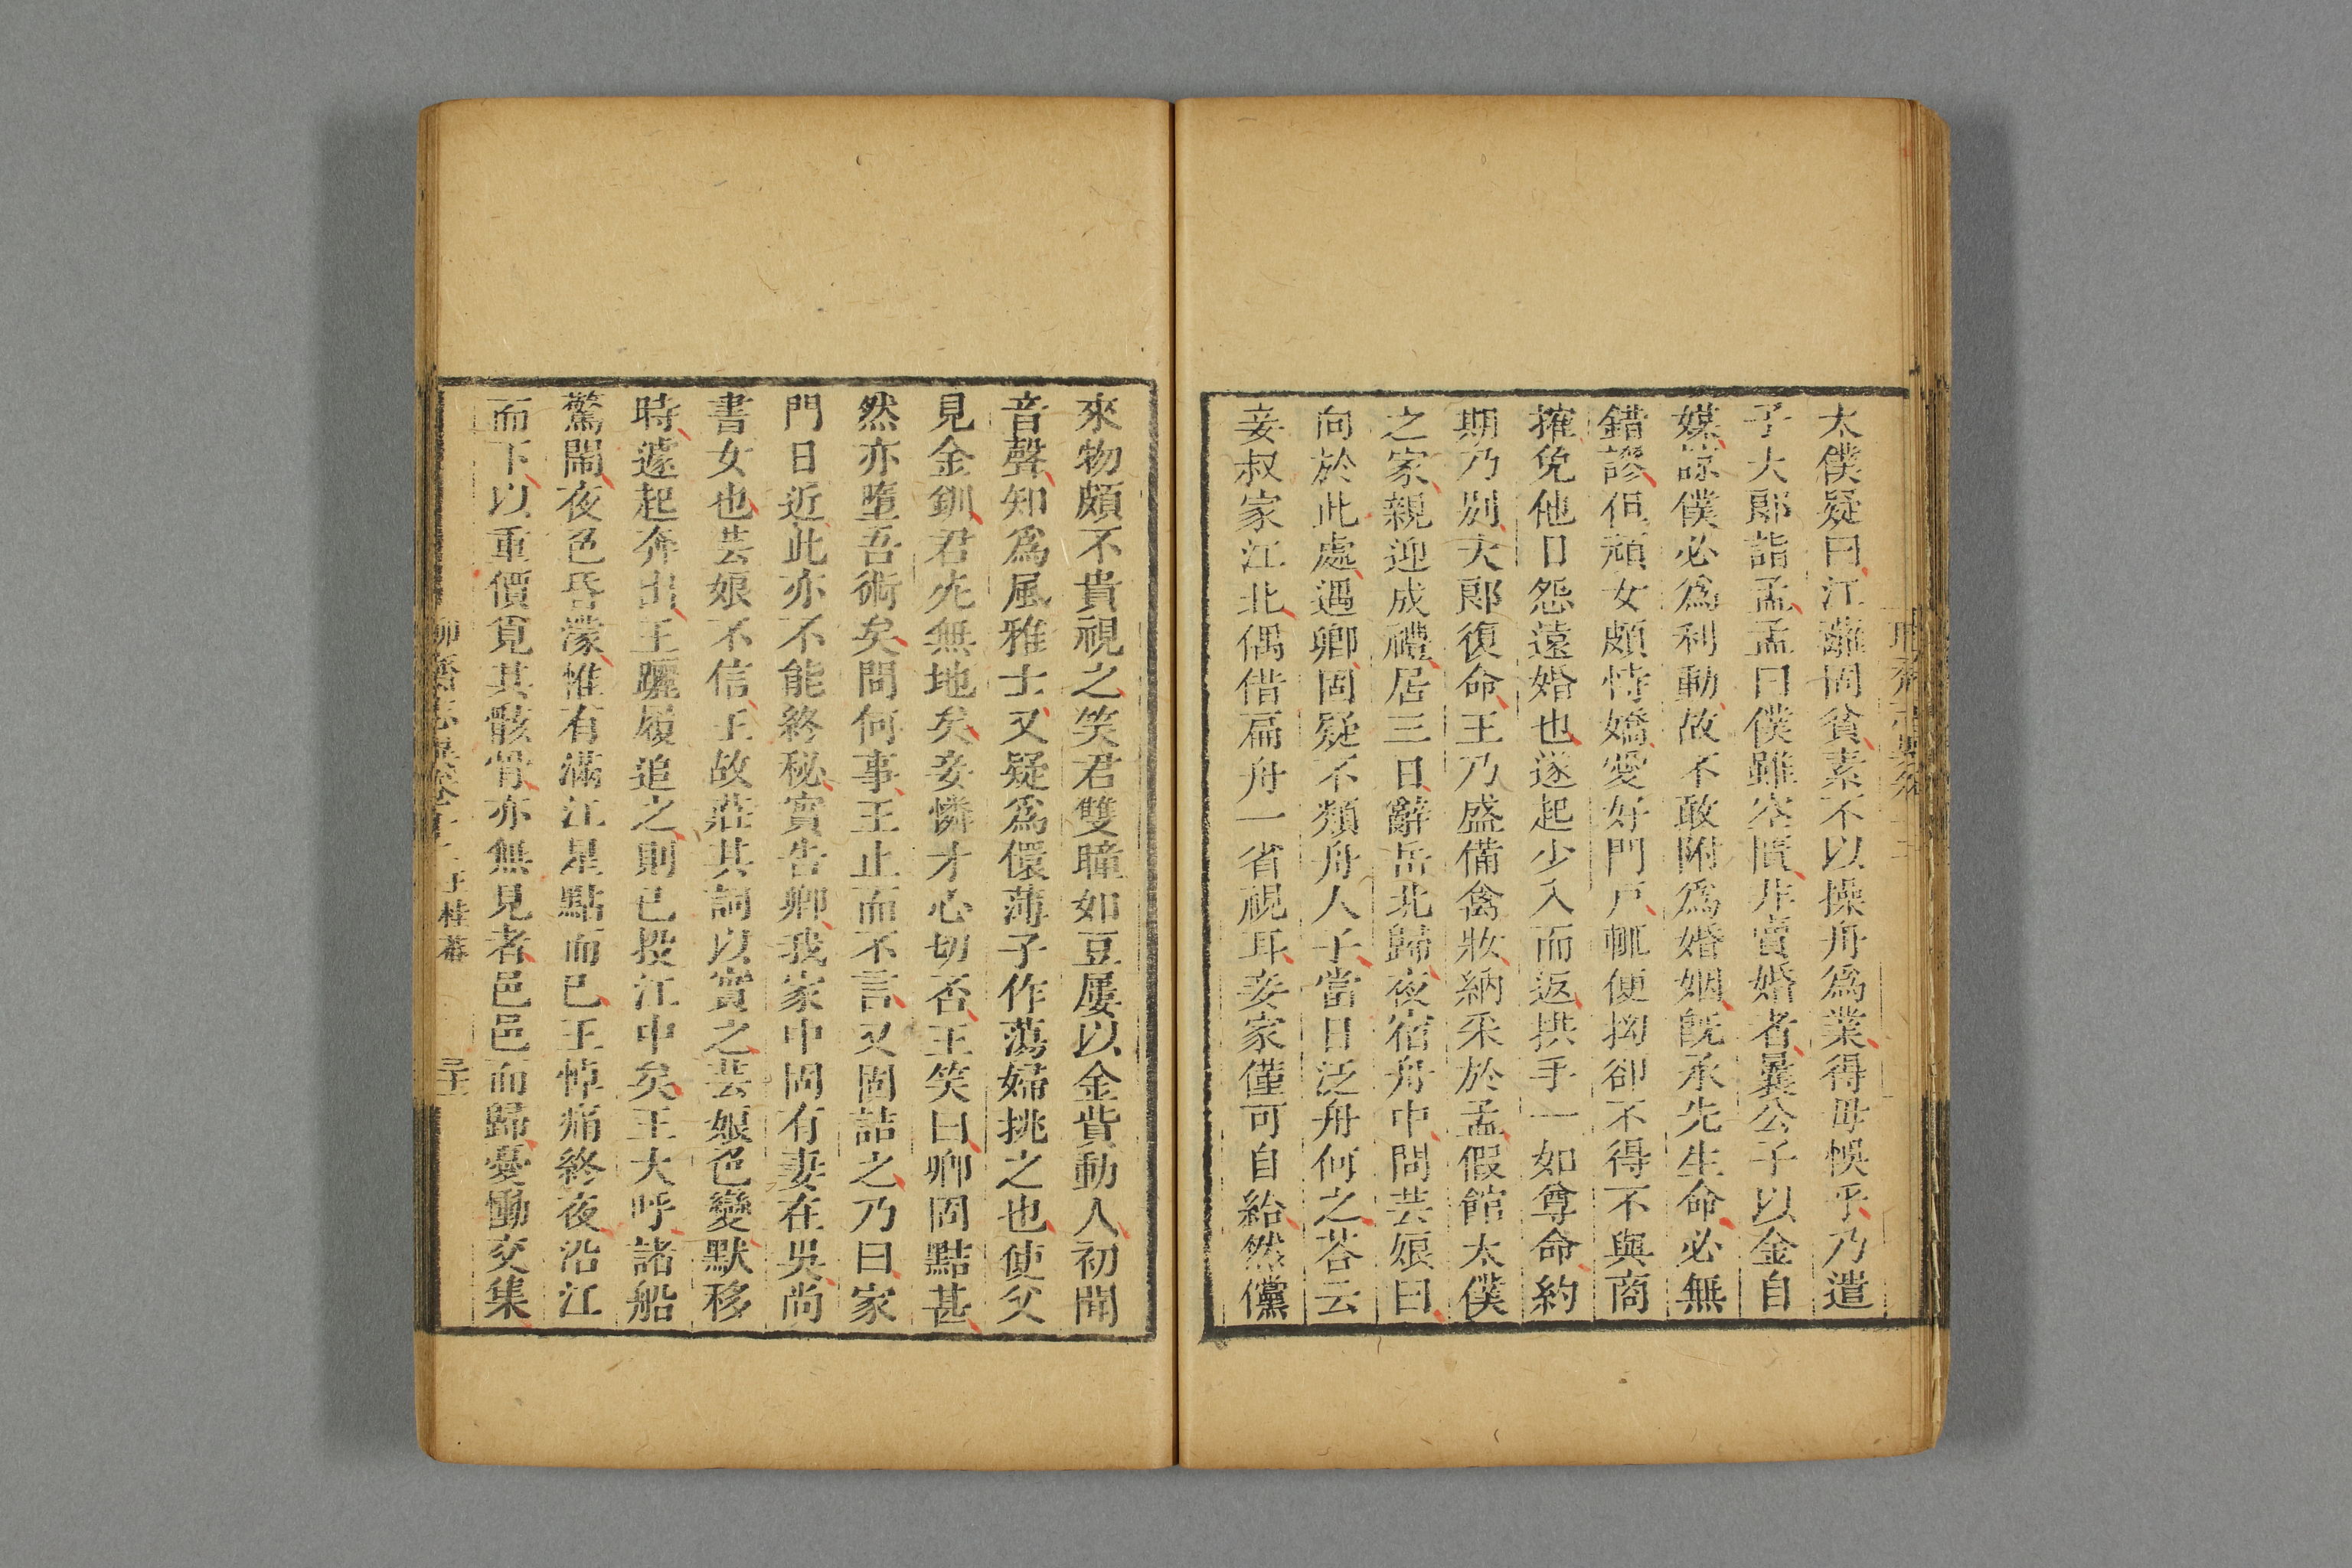 太僕疑曰江蘺固貧素不以操舟爲業得毋悞乎乃遣
子大郎詣孟孟曰僕雖空匱非賣婚者曩公子以金自
媒諒僕必爲利動故不敢附爲婚姻旣承先生命必無
錯謬但頑女頗恃嬌愛好門戸輒便拗卻不得不與商
搉免他日怨遠婚也遂起少入而返拱手一如尊命約
期乃別大郎復命王乃盛備禽妝納采於孟假館太僕
之家親迎成禮居三日辭岳北歸夜宿舟中問芸娘曰
向於此處遇卿固疑不類舟人子當日泛舟何之荅云
妾叔家江北偶借扁舟一省視耳妾家僅可自給然儻
來物頗不貴視之笑君雙瞳如豆屢以金貲動人初聞
音聲知爲風雅士又疑爲儇薄子作蕩婦挑之也使父
見金釧君死無地矣妾憐才心切否王笑曰卿固黠甚
然亦墮吾術矣問何事王止而不言又固詰之乃曰家
門日近此亦不能終秘實告卿我家中固有妻在吳尚
書女也芸娘不信王故莊其詞以實之芸娘色變默移
時遽起奔出王躧履追之則已投江中矣王大呼諸船
驚鬧夜色昏濛惟有滿江星點而已王悼痛終夜沿江
而下以重價覓其骸骨亦無見者邑邑而歸憂慟交集
王桂菴